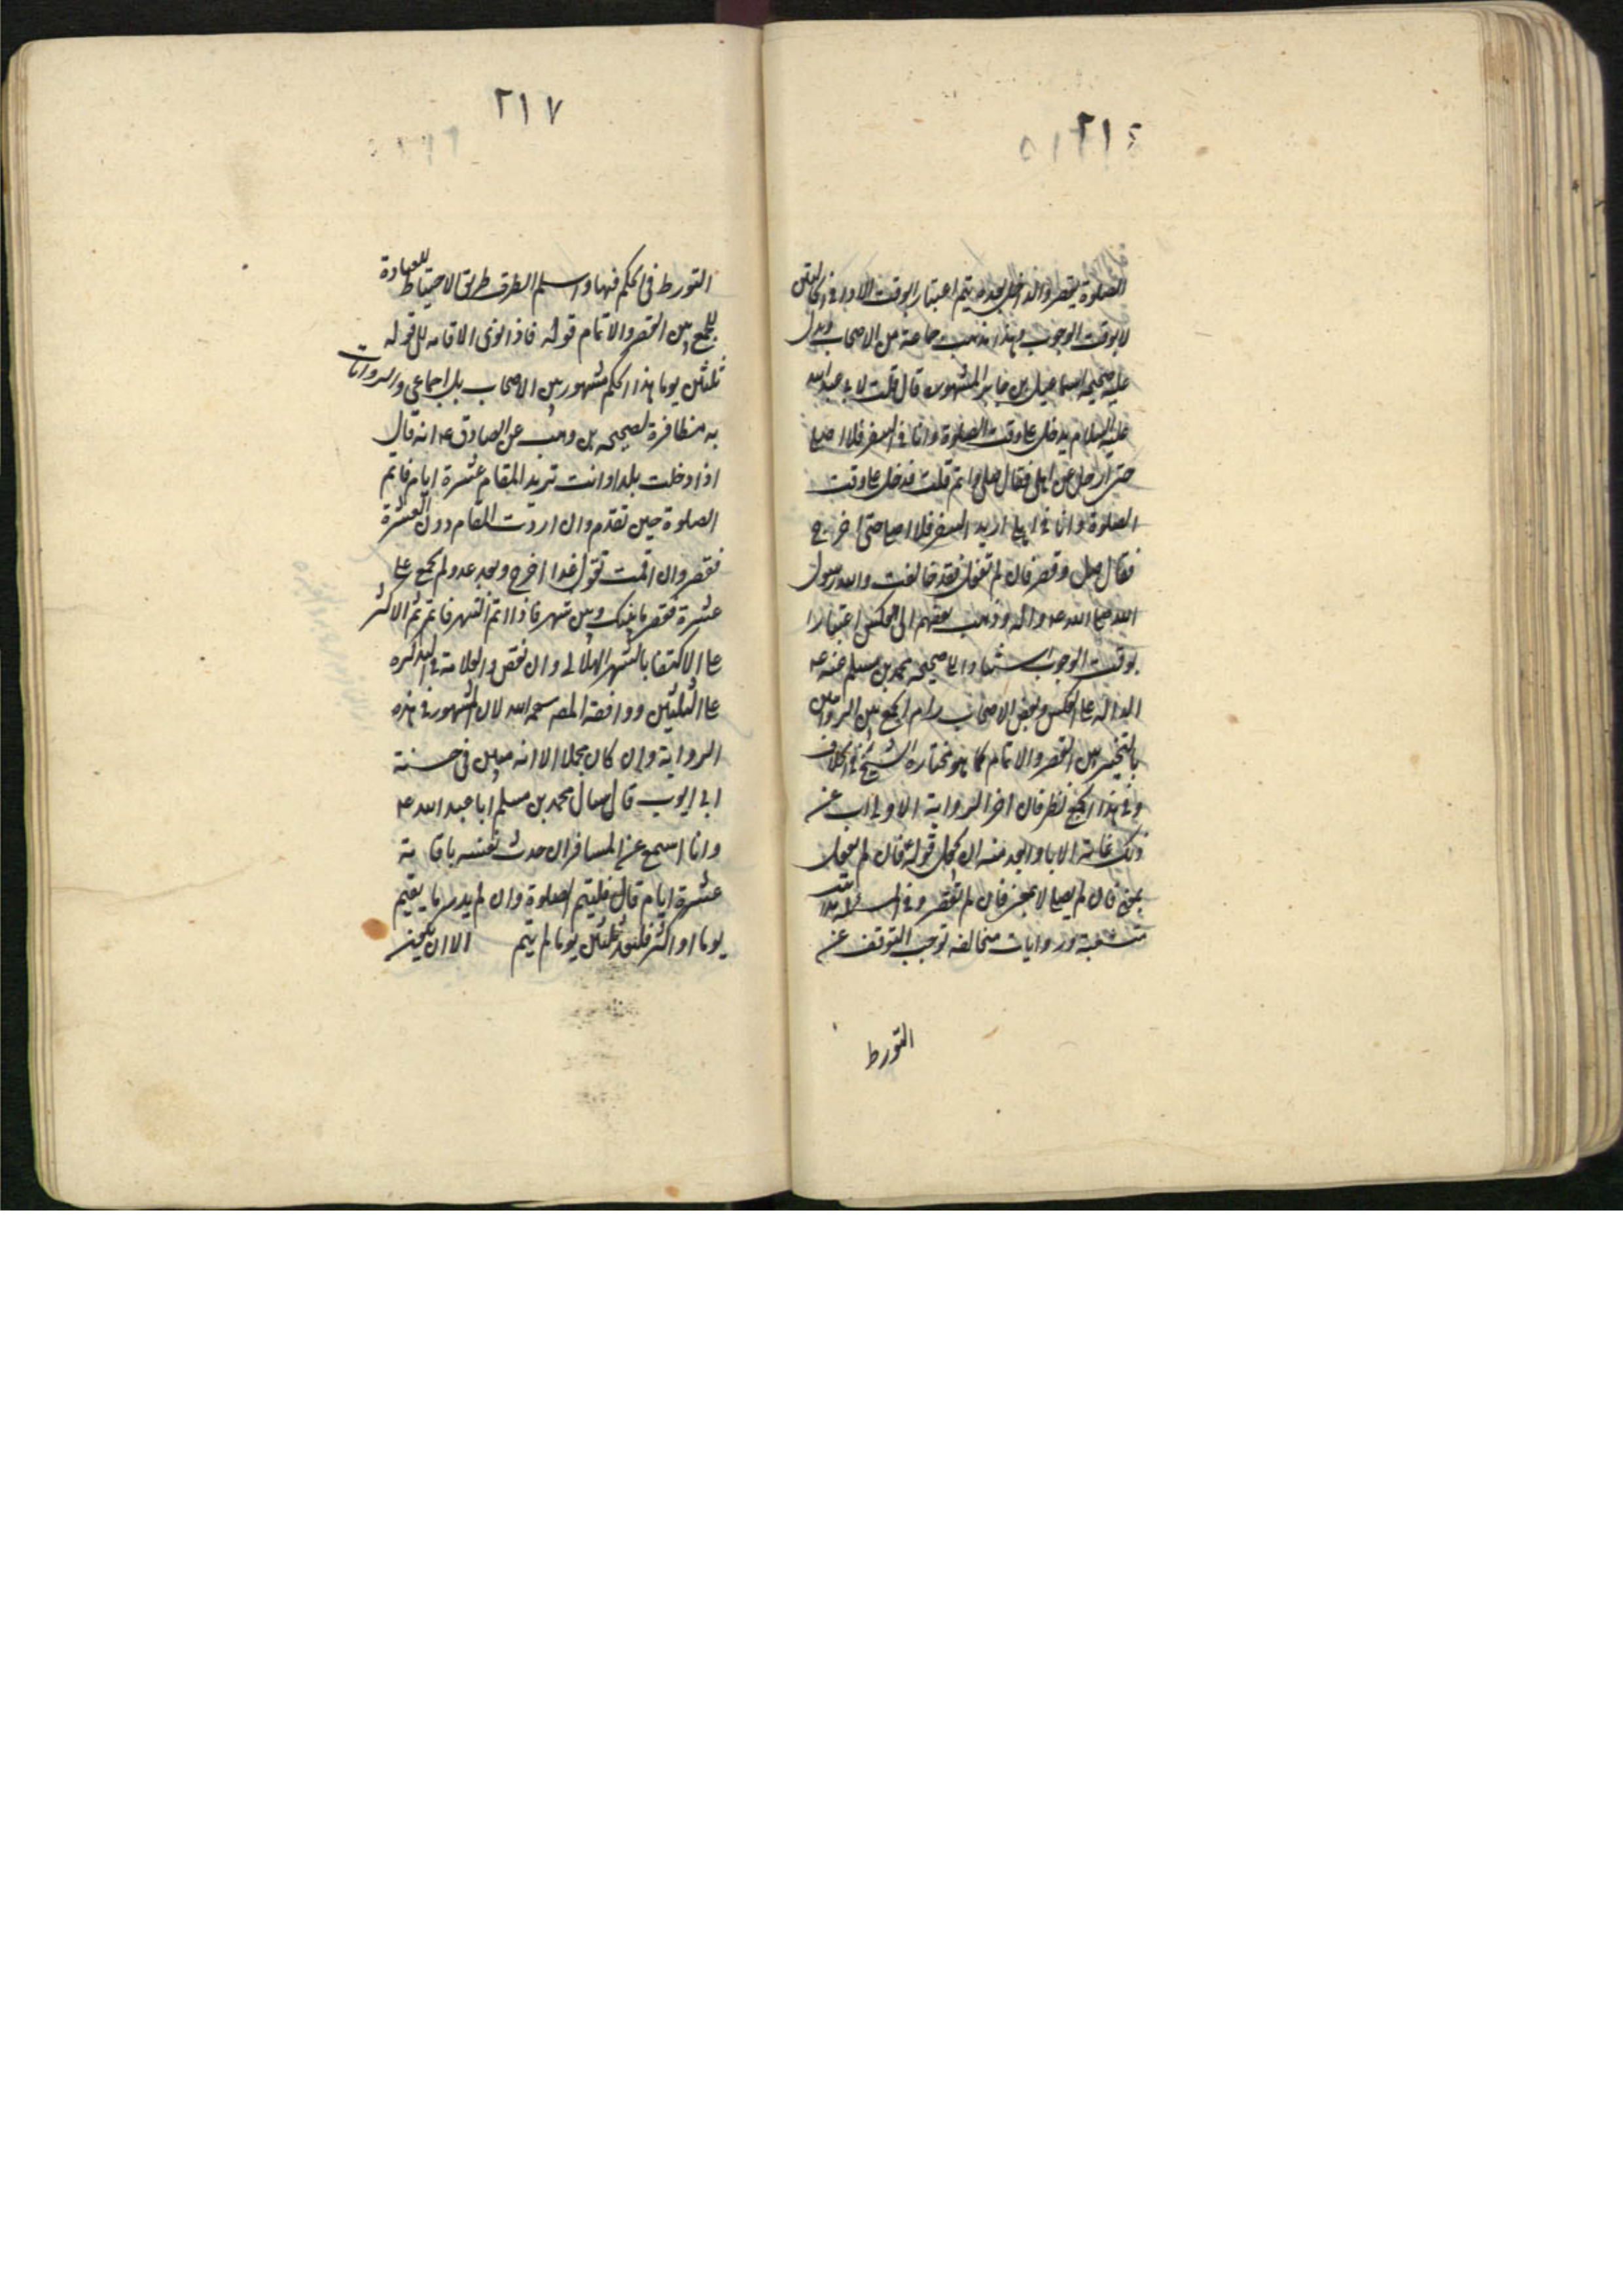 ٢١٤
الصلوة يقصر والداخل بعده يتم اعتبار الوقت الاداء في الحالتين
لا بوقت الوجوب وبهذا ذهب جماعة من الاصحاب ويدل
عليه صحيحة اسماعيل بن جابر المشهورة قال قلت لابي عبد الله
عليه السلام يدخل علي وقت الصلوة وانا في السفر فلا اصلي
حتى ادخل اهلي فقال صل واتم قلت فدخل علي وقت
الصلوة وانا في اهلي اريد السفر فلا اصلي حتى اخرج
فقال صل وقصر فان لم تفعل فقد خالفت والله رسول
الله صلى الله عليه واله وذهب بعضهم الى العكس اعتبارا
بوقت الوجوب استنادا الى صحيحة محمد بن مسلم عنه ع
الدالة على العكس وبعض الاصحاب رام الجمع بين الروايتين
بالتخيير بين القصر والاتمام كما هو مختاره الشيخ في الخلاف
وفي هذا الجمع نظر فان اخر الرواية الاولى اب عن
ذلك غاية الاباء وابعد منه ان يحمل قوله فان لم تفعل
بمعنى فان لم يصل لا بمعنى فان لم تقصر وفي المسئلة
متشعبة وروايات متخالفة توجب التوقف عن
التورط
٢١٧
التورط في الحكم فيها واسلم الطرق طريق الاحتياط للعبادة
بالجمع بين القصر والاتمام قوله فاذا نوى الاقامه الى قوله
ثلثين يوما هذا الحكم مشهور بين الاصحاب بل اجماعي والروايات
به متظافرة لصحيحه بن وهب عن الصادق ع انه قال
اذا دخلت بلدا وانت تريد المقام عشرة ايام فاتم
الصلوة حين تقدم وان اردت المقام دون العشرة
فقصر وان اقمت تقول غدا اخرج وبعد غد ولم تجمع على
عشرة فقصر ما بينك وبين شهر فاذا اتم الشهر فاتم ثم الاكثر
على الاكتفا بالشهر الهلالى وان نقص والعلامة في التذكره
على الثلثين ووافقه المصه رحمه الله لان الشهور في هذه
الرواية وان كان مجملا الا انه مبين في حسنة
ابي ايوب قال سال محمد بن مسلم ابا عبد الله ع
وانا اسمع عن المسافر ان حدث نفسه باقامة
عشرة ايام قال فليتم الصلوة وان لم يدر ما يقيم
يوما او اكثر فليعد ثلثين يوما ثم يتم الا ان يكون